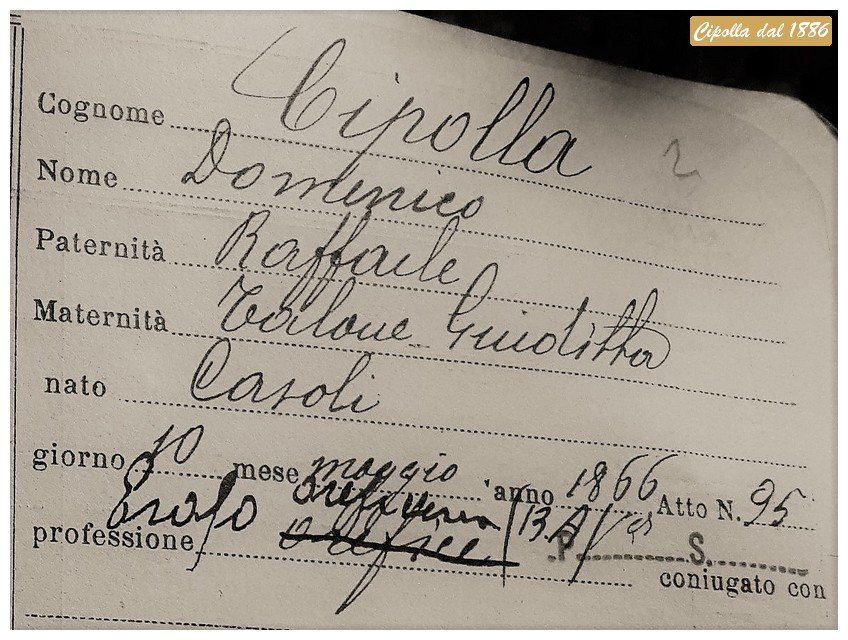 Cipolla dal 1886
Cognome Cipolla
Nome Domenico
Paternità Raffaele
Maternità Talone Giuditta
nato Casoli
giorno 10 mese maggio anno 1866 Atto N. 95
oreficeria
professione orefice P. S.
coniugato con